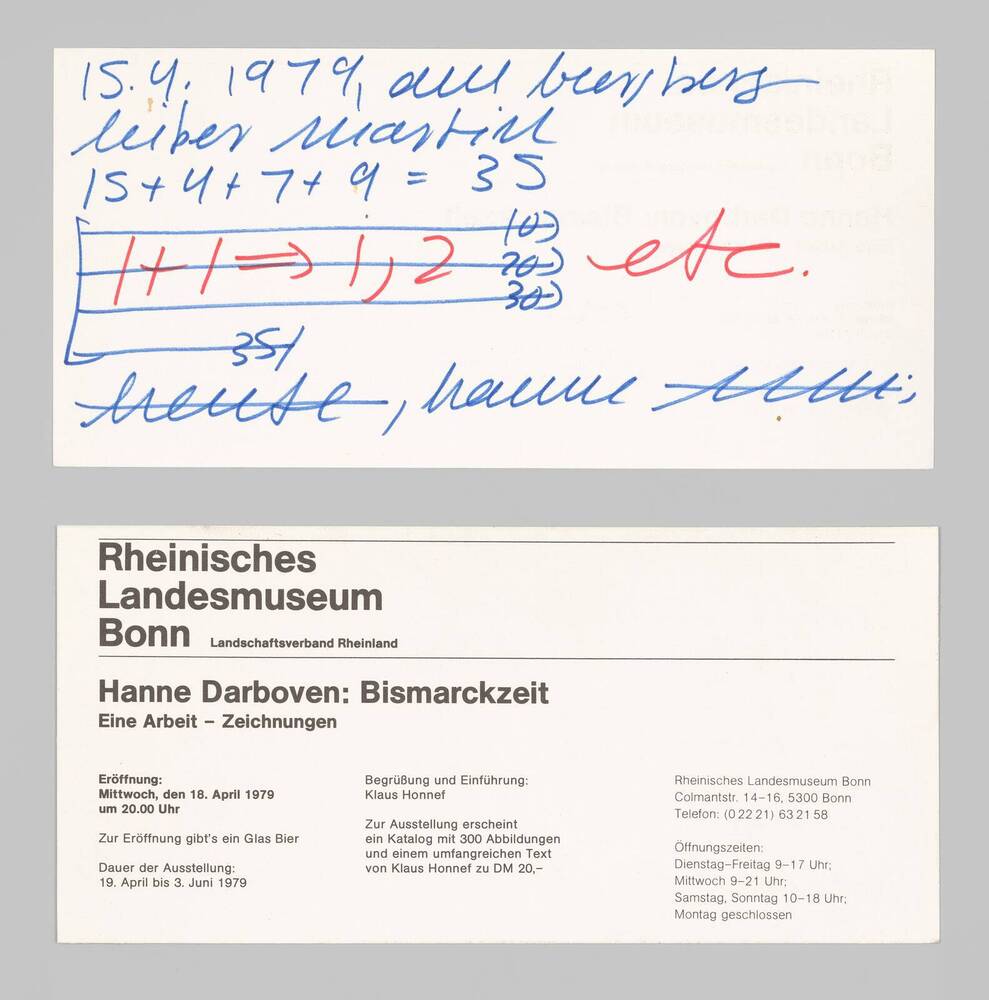 15.4. 1979, am burgberg
lieber martin
15+4+7+9 = 35
1+1 => 1,2 etc.
10)
20)
30)
35/
heute, hanne
Rheinisches
Landesmuseum
Bonn Landschaftsverband Rheinland
Hanne Darboven: Bismarckzeit
Eine Arbeit – Zeichnungen
Eröffnung:
Mittwoch, den 18. April 1979
um 20.00 Uhr
Zur Eröffnung gibt's ein Glas Bier
Dauer der Ausstellung:
19. April bis 3. Juni 1979
Begrüßung und Einführung:
Klaus Honnef
Zur Ausstellung erscheint
ein Katalog mit 300 Abbildungen
und einem umfangreichen Text
von Klaus Honnef zu DM 20,–
Rheinisches Landesmuseum Bonn
Colmantstr. 14–16, 5300 Bonn
Telefon: (0 22 21) 63 21 58
Öffnungszeiten:
Dienstag–Freitag 9–17 Uhr;
Mittwoch 9–21 Uhr;
Samstag, Sonntag 10–18 Uhr;
Montag geschlossen